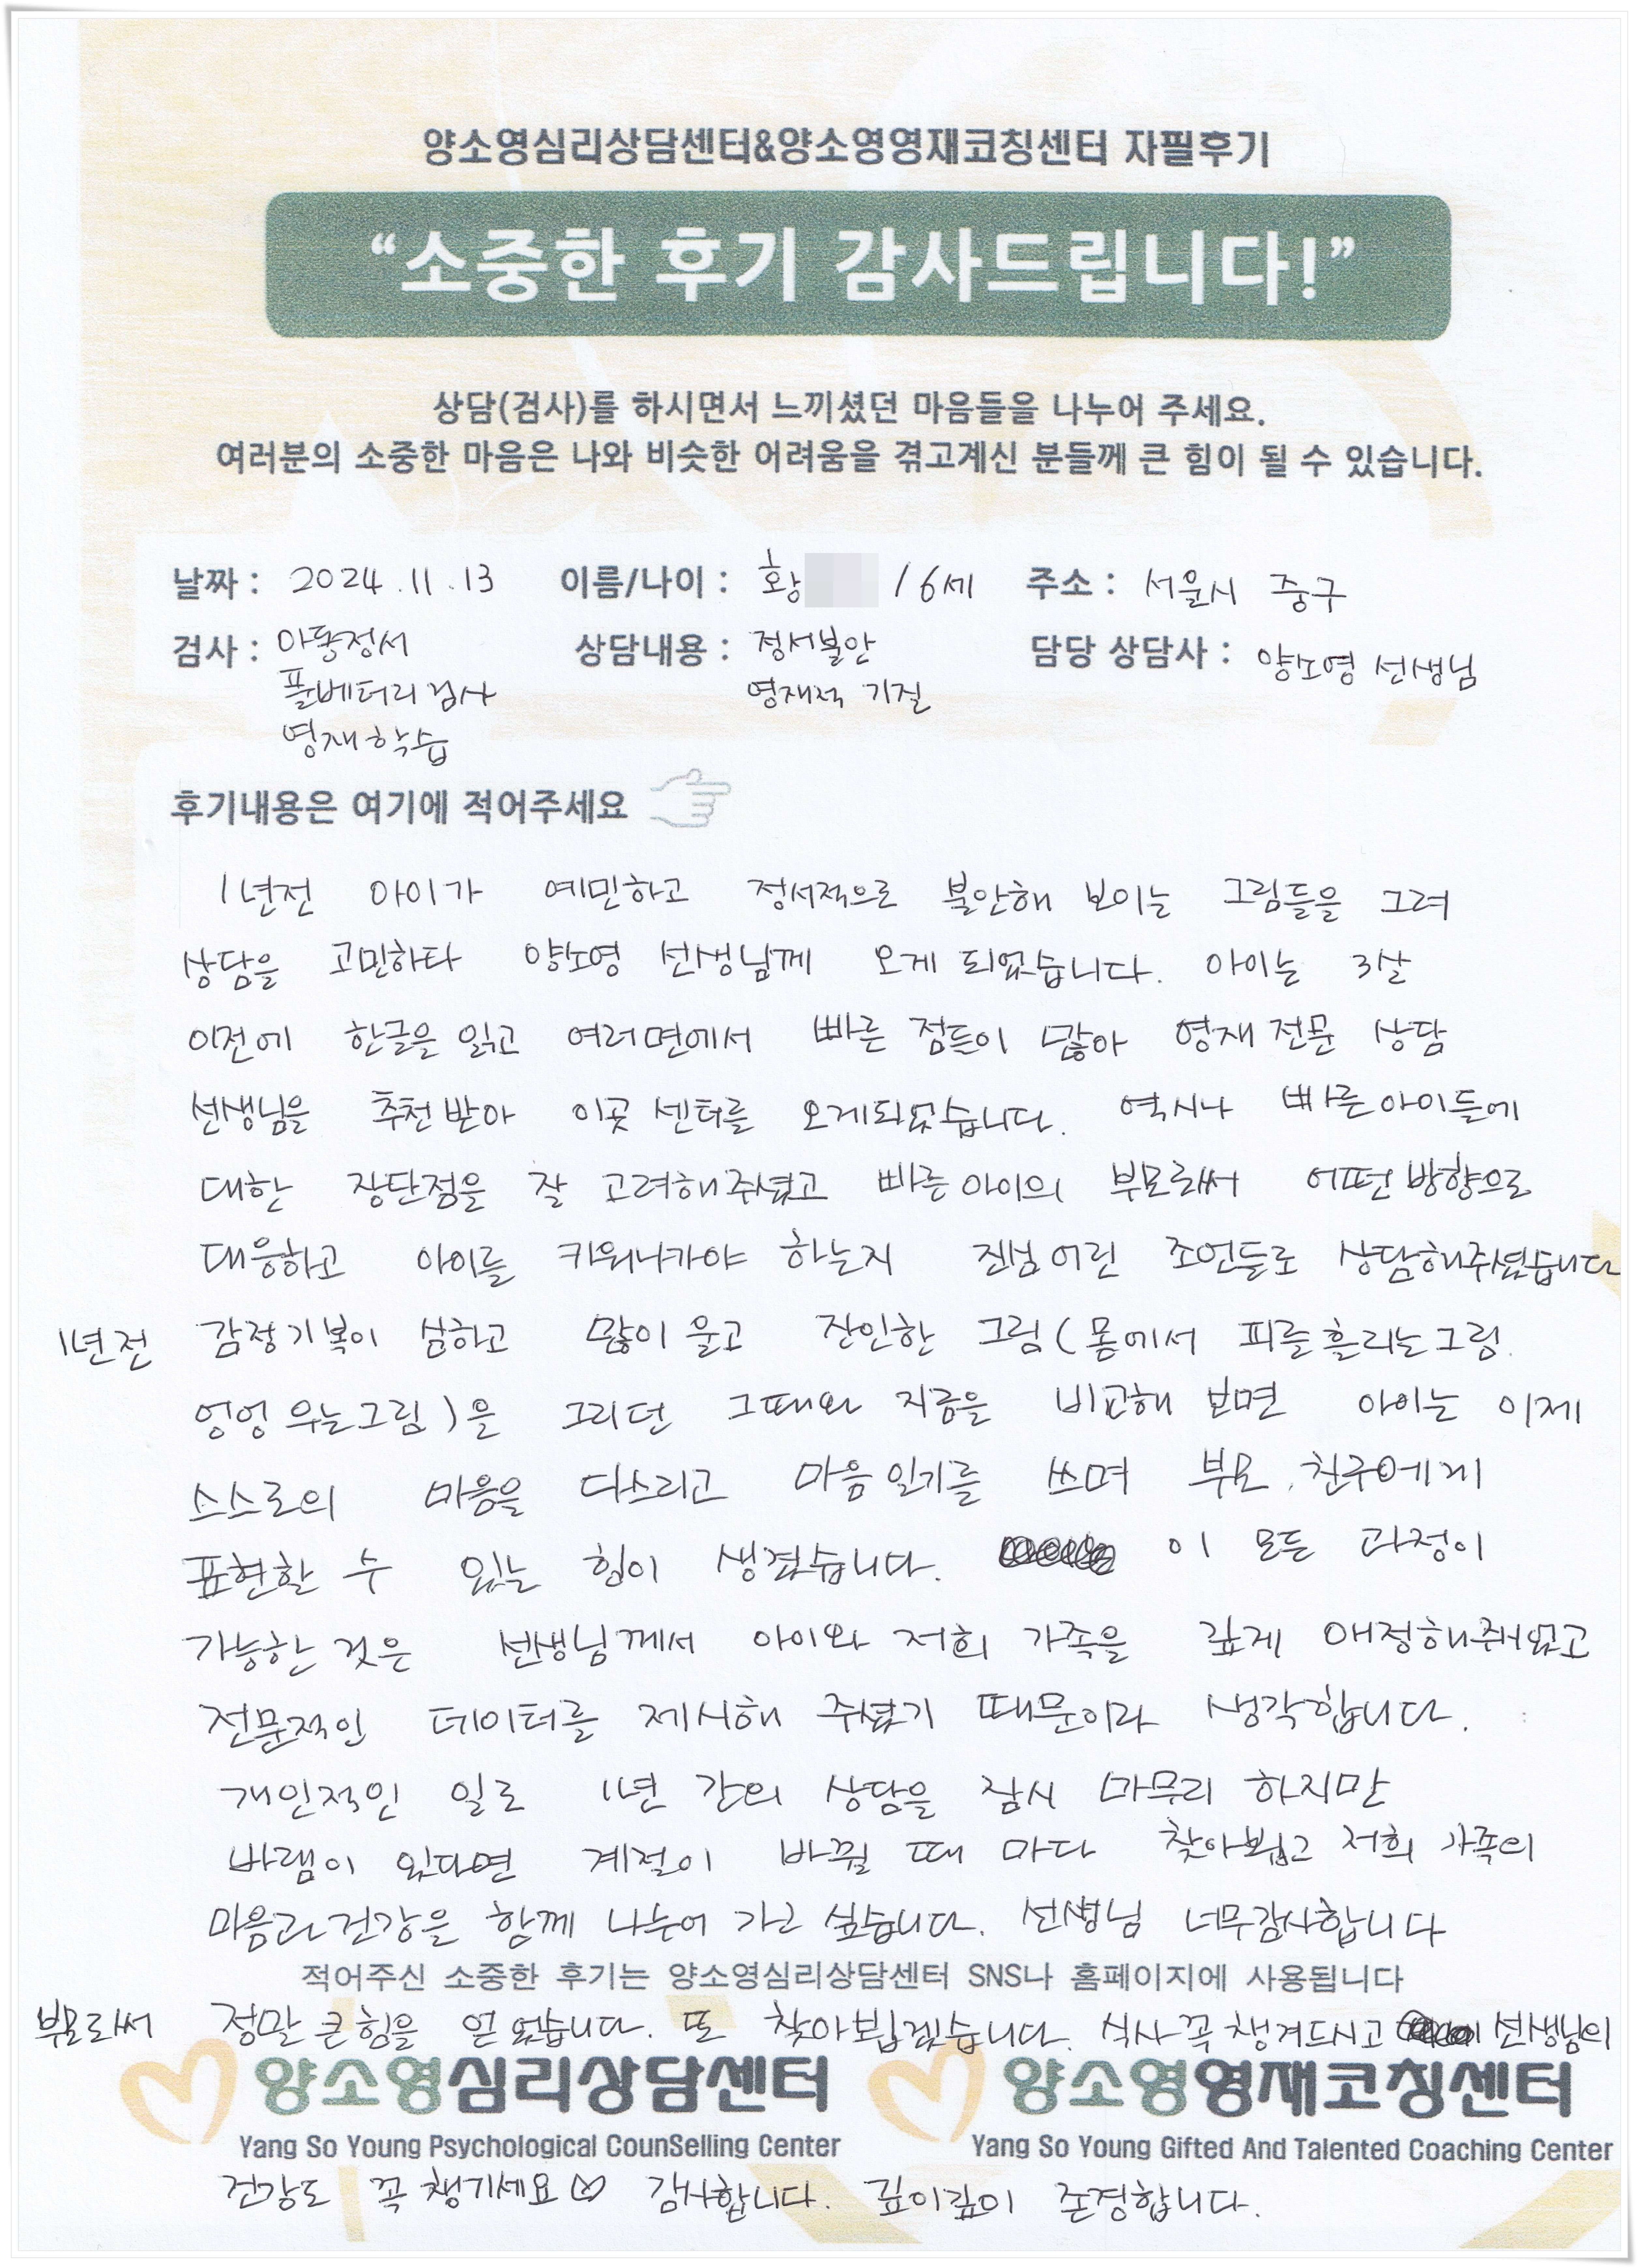 양소영심리상담센터&양소영영재코칭센터 자필후기
“소중한 후기 감사드립니다!”
상담(검사)를 하시면서 느끼셨던 마음들을 나누어 주세요.
여러분의 소중한 마음은 나와 비슷한 어려움을 겪고계신 분들께 큰 힘이 될 수 있습니다.
날짜 : 2024.11.13 이름/나이 : 황 / 6세 주소 : 서울시 중구
검사 : 아동정서 상담내용 : 정서불안 담당 상담사 : 양소영 선생님
풀베터리 검사 영재적 기질
영재학습
후기내용은 여기에 적어주세요
1년전 아이가 예민하고 정서적으로 불안해 보이는 그림들을 그려
상담을 고민하다 양소영 선생님께 오게 되었습니다. 아이는 3살
이전에 한글을 읽고 여러면에서 빠른 점들이 많아 영재 전문 상담
선생님을 추천 받아 이곳 센터를 오게되었습니다. 역시나 빠른아이들에
대한 장단점을 잘 고려해주셨고 빠른아이의 부모로써 어떤방향으로
대응하고 아이를 키워나가야 하는지 진심어린 조언들로 상담해주셨습니다
1년전 감정기복이 심하고 많이 울고 잔인한 그림 (몸에서 피를흘리는그림.
엉엉 우는그림)을 그리던 그때와 지금을 비교해 보면 아이는 이제
스스로의 마음을 다스리고 마음일기를 쓰며 부모, 친구에게
표현할 수 있는 힘이 생겼습니다. 이 모든 과정이
가능한 것은 선생님께서 아이와 저희 가족을 깊게 애정해주셨고
전문적인 데이터를 제시해 주셨기 때문이라 생각합니다.
개인적인 일로 1년 간의 상담을 잠시 마무리 하지만
바램이 있다면 계절이 바뀔 때 마다 찾아뵙고 저희 가족의
마음과 건강을 함께 나누어 가고 싶습니다. 선생님 너무감사합니다
적어주신 소중한 후기는 양소영심리상담센터 SNS나 홈페이지에 사용됩니다
부모로써 정말 큰힘을 얻었습니다. 또 찾아뵙겠습니다. 식사 꼭 챙겨드시고 선생님의
양소영심리상담센터 양소영영재코칭센터
Yang So Young Psychological CounSelling Center Yang So Young Gifted And Talented Coaching Center
건강도 꼭 챙기세요♡ 감사합니다. 깊이깊이 존경합니다.